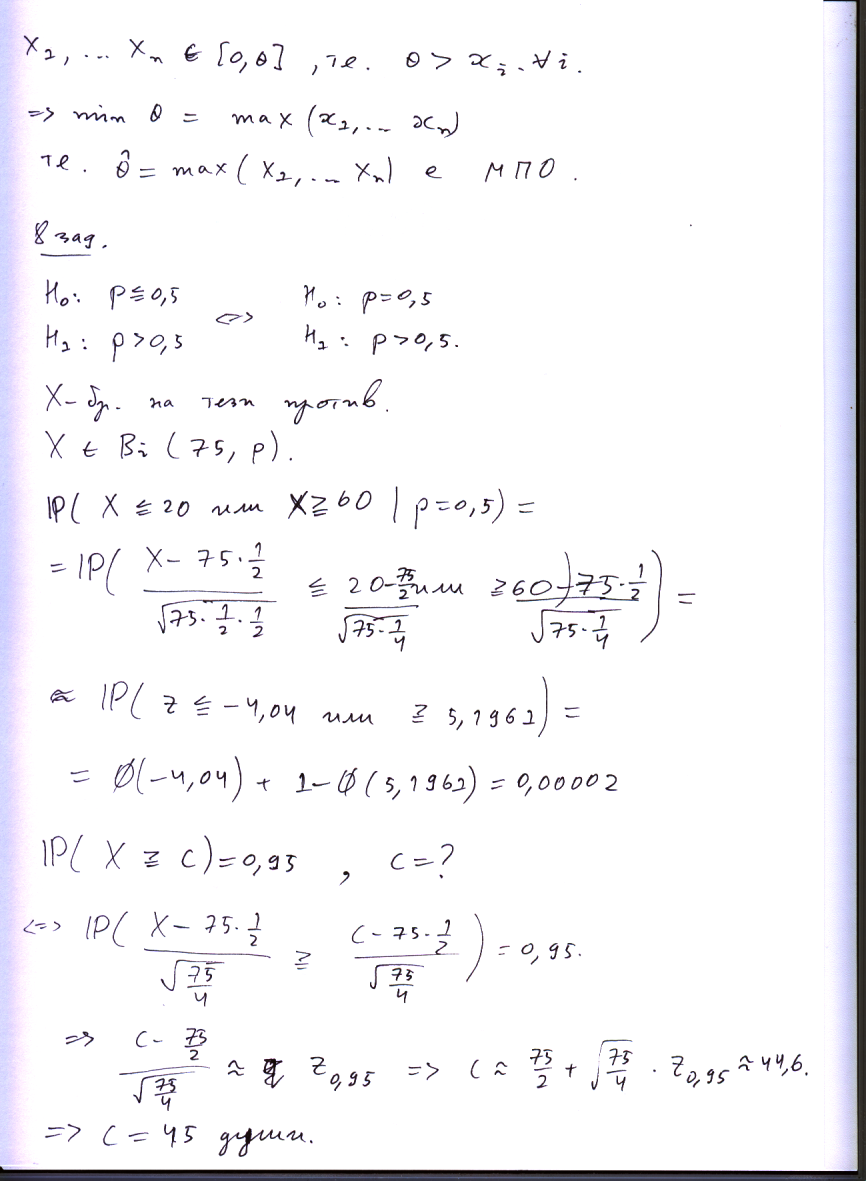 X₁, ... Xₙ ∈ [0, θ] , т.е. θ > xᵢ . ∀ i.
=> min θ = max (x₁, ... xₙ)
т.е. θ̂ = max ( X₁, ... Xₙ) е МПО .
8 зад.
H₀: p ≤ 0,5 <=> H₀ : p = 0,5
H₁ : p > 0,5 H₁ : p > 0,5.
X - бр. на тези против.
X ∈ Bi ( 75, p ).
IP( X ≤ 20 или X ≥ 60 | p = 0,5 ) =
= IP( (X - 75·1/2) / √(75·1/2·1/2) ≤ (20 - 75/2) / √(75·1/4) или ≥ (60 - 75·1/2) / √(75·1/4) ) =
≈ IP( z ≤ -4,04 или ≥ 5,1962 ) =
= Ø(-4,04) + 1 - Ø(5,1962) = 0,00002
IP( X ≥ c ) = 0,95 , c = ?
<=> IP( (X - 75·1/2) / √(75/4) ≥ (c - 75·1/2) / √(75/4) ) = 0,95.
=> (c - 75/2) / √(75/4) ≈ z₀,₉₅ => c ≈ 75/2 + √(75/4) · z₀,₉₅ ≈ 44,6.
=> c = 45 души.